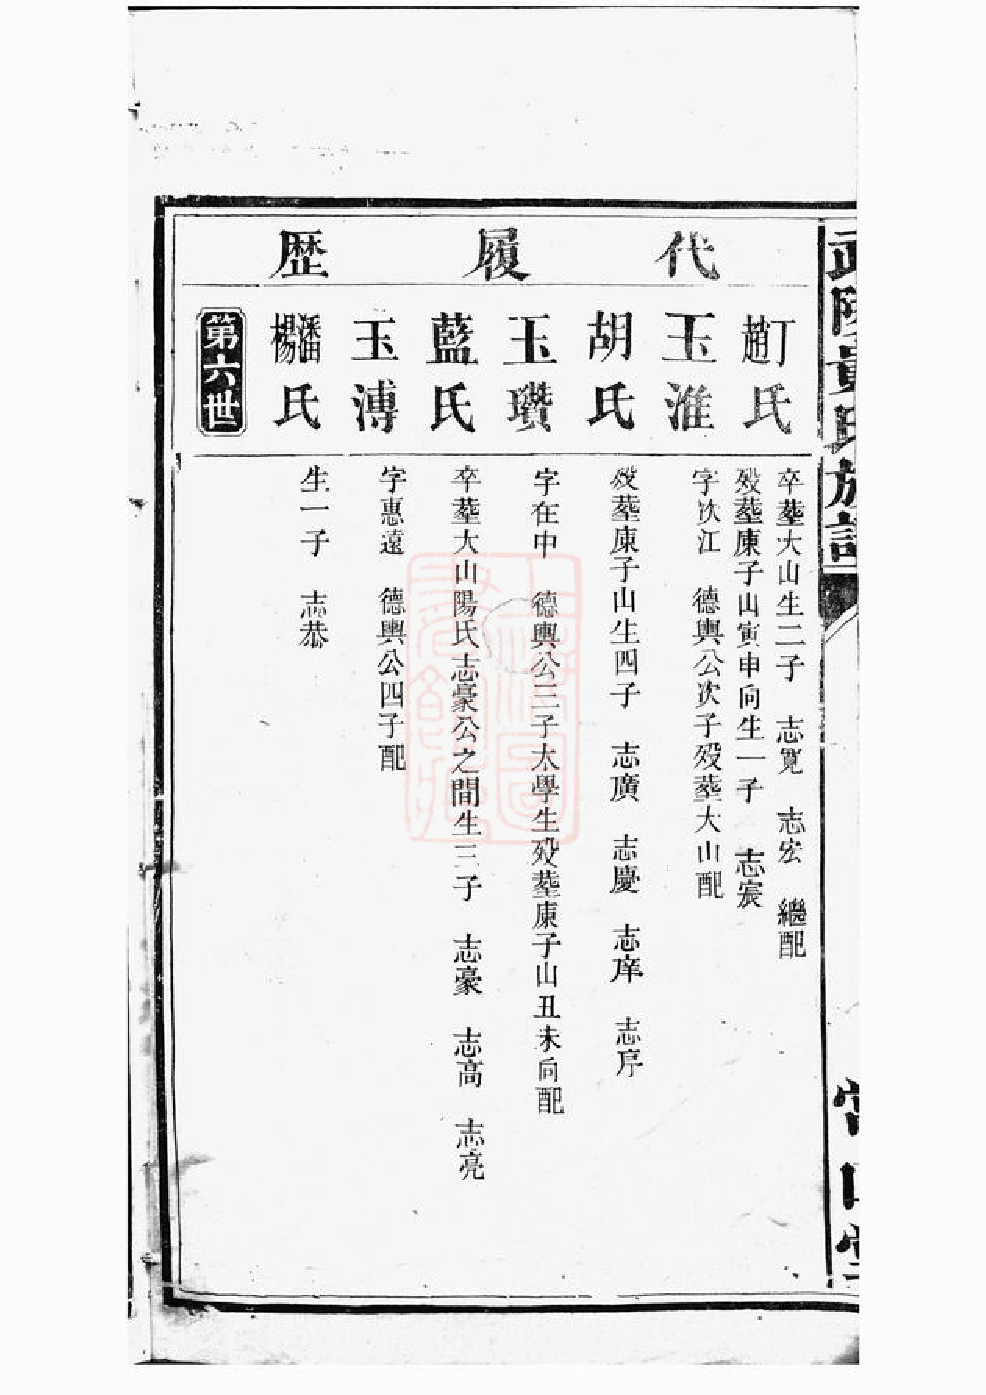 代履歷
丁趙氏
卒塟大山生二子 志寬 志宏 繼配
殁塟庚子山寅申向生一子 志宸
玉淮
字次江 德興公次子殁塟大山配
胡氏
殁塟庚子山生四子 志廣 志慶 志庠 志序
玉瓚
字在中 德興公三子太學生殁塟庚子山丑未向配
藍氏
卒塟大山陽氏志豪公之間生三子 志豪 志高 志亮
玉溥
字惠遠 德興公四子配
潘楊氏
生一子 志恭
第六世